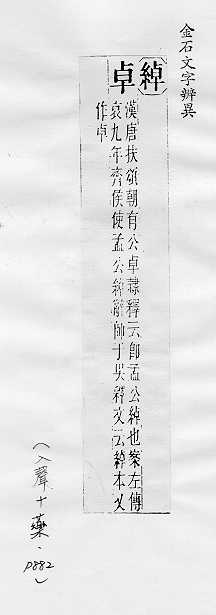 金石文字辨異
綽
卓
漢唐扶頌朝有公卓隸釋云即孟公綽也案左傳
哀九年齊侯使孟公綽辭師于吳釋文云綽本又
作卓
(入聲十藥·P882)